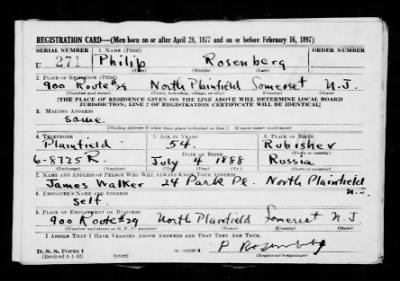 REGISTRATION CARD—(Men born on or after April 28, 1877 and on or before February 16, 1897)
SERIAL NUMBER 1. NAME (Print) ORDER NUMBER
U 271 Philip Rosenberg
(First) (Middle) (Last)
2. PLACE OF RESIDENCE (Print)
900 Route 29 North Plainfield Somerset N.J.
(Number and street) (Town, township, village, or city) (County) (State)
[THE PLACE OF RESIDENCE GIVEN ON THE LINE ABOVE WILL DETERMINE LOCAL BOARD
JURISDICTION; LINE 2 OF REGISTRATION CERTIFICATE WILL BE IDENTICAL]
3. MAILING ADDRESS
Same.
[Mailing address if other than place indicated on line 2. If same insert word same]
4. TELEPHONE 5. AGE IN YEARS 6. PLACE OF BIRTH
Plainfield 54. Rubishev
DATE OF BIRTH
6-8725R. July 4 1888 Russia
7. NAME AND ADDRESS OF PERSON WHO WILL ALWAYS KNOW YOUR ADDRESS
James Walker 24 Park Pl. North Plainfield N.J.
8. EMPLOYER'S NAME AND ADDRESS
Self.
9. PLACE OF EMPLOYMENT OR BUSINESS
900 Route 29 North Plainfield Somerset N.J.
(Number and street or R. F. D. number) (Town) (County) (State)
I AFFIRM THAT I HAVE VERIFIED ABOVE ANSWERS AND THAT THEY ARE TRUE.
D. S. S. Form 1
(Revised 4-1-42) (over) P Rosenberg
(Registrant's signature)